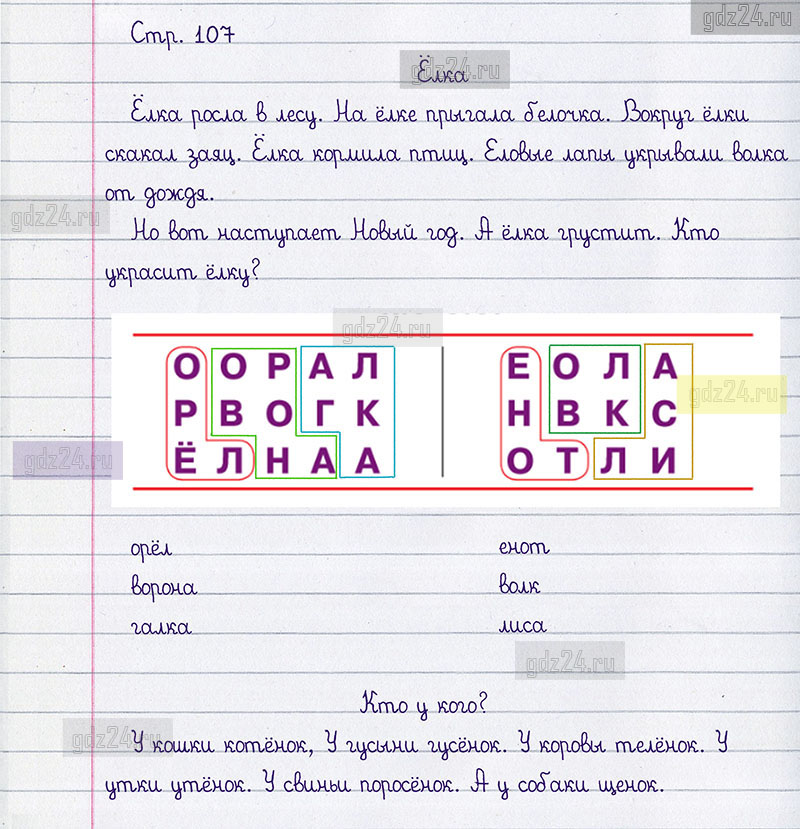 gdz24.ru
Стр. 107
gdz24.ru
Ёлка
Ёлка росла в лесу. На ёлке прыгала белочка. Вокруг ёлки
скакал заяц. Ёлка кормила птиц. Еловые лапы укрывали волка
от дождя.
gdz24.ru
Но вот наступает Новый год. А ёлка грустит. Кто
украсит ёлку?
gdz24.ru
О О Р А Л
Р В О Г К
Ё Л Н А А
Е О Л А
Н В К С
О Т Л И
gdz24.ru
gdz24.ru
орёл
ворона
галка
енот
волк
лиса
gdz24.ru
Кто у кого?
gdz24.ru
У кошки котёнок, У гусыни гусёнок. У коровы телёнок. У
утки утёнок. У свиньи поросёнок. А у собаки щенок.